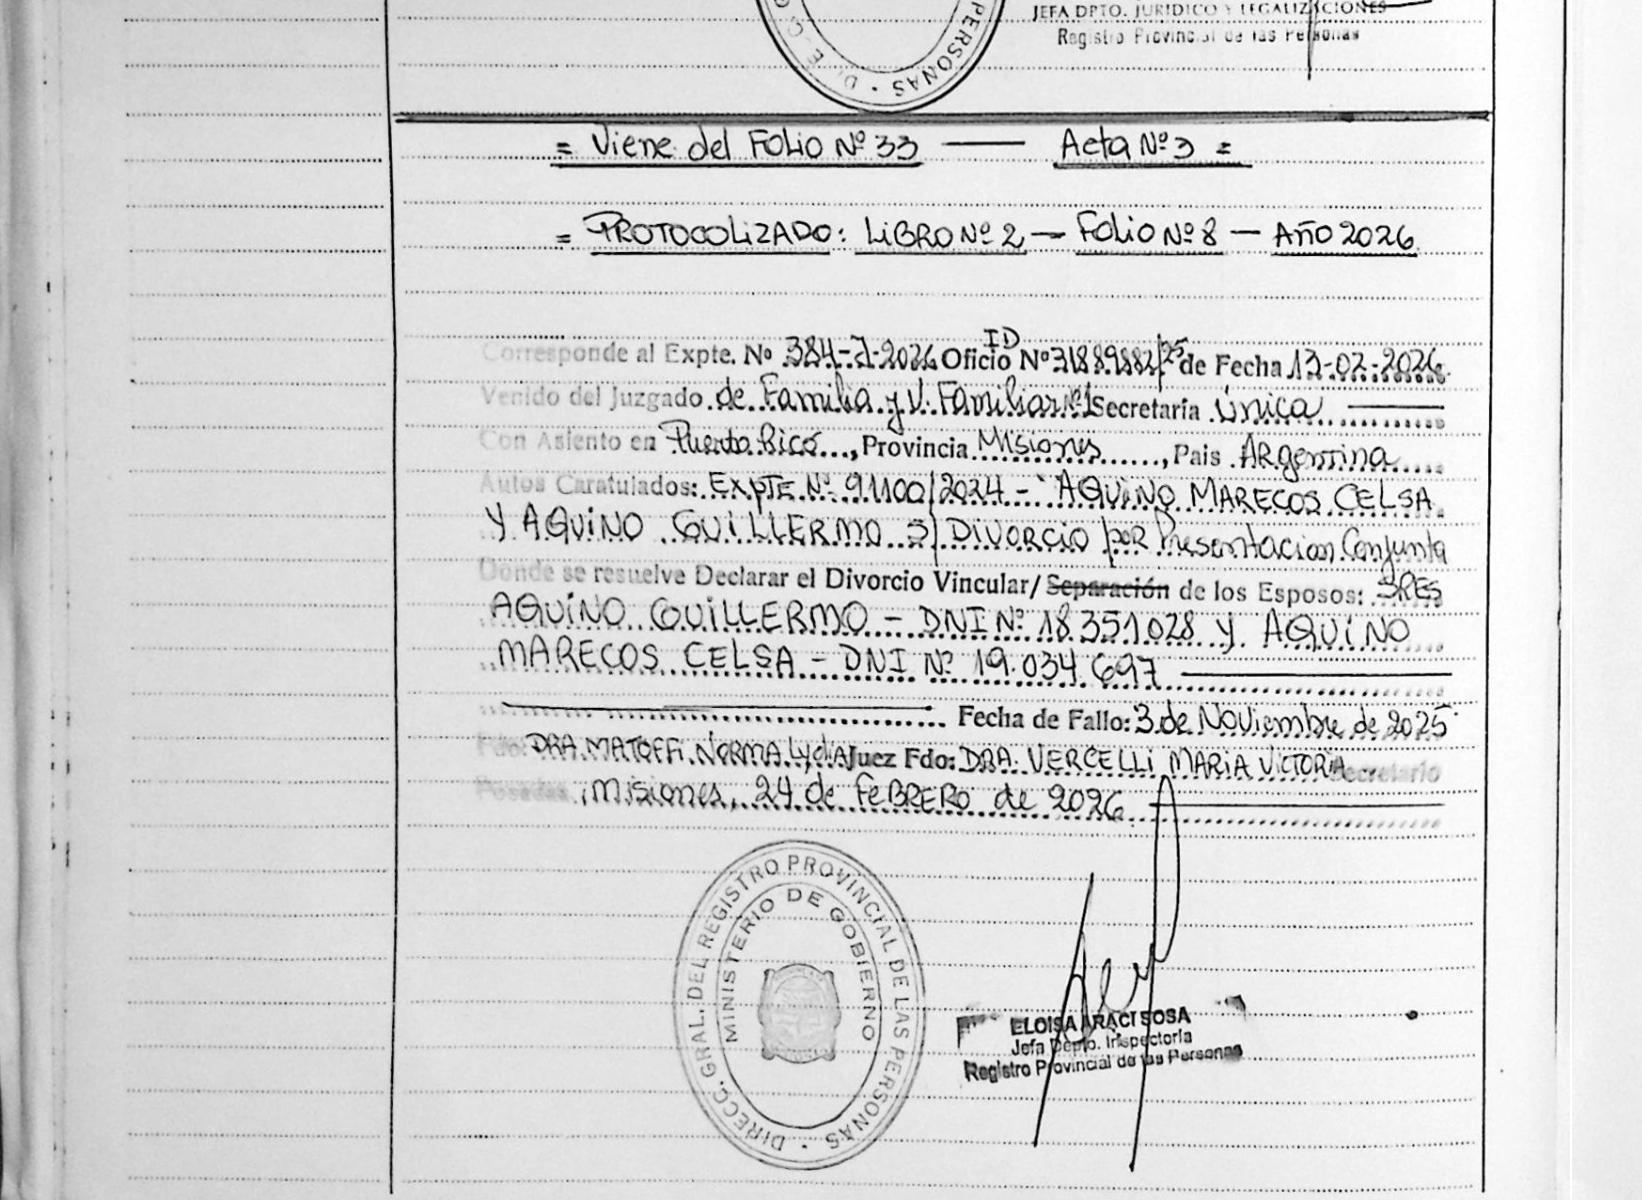 PERSONAS · DI
JEFA DPTO. JURIDICO Y LEGALIZACIONES
Registro Provincial de las Personas
= Viene del FOLIO Nº 33 — Acta Nº 3 =
= PROTOCOLIZADO: LIBRO Nº 2 — FOLIO Nº 8 — AÑO 2026
ID
Corresponde al Expte. Nº 384-J-2026 Oficio Nº 31889882/25 de Fecha 13-02-2026
Venido del Juzgado de Familia y V. Familiar Nº1 Secretaria Única
Con Asiento en Puerto Rico, Provincia Misiones, Pais Argentina
Autos Caratulados: EXPTE Nº 91100/2024 - AQUINO MARECOS CELSA
Y AQUINO GUILLERMO S/ DIVORCIO por Presentacion Conjunta
Donde se resuelve Declarar el Divorcio Vincular/ Separación de los Esposos: SRES
AQUINO GUILLERMO - DNI Nº 18.351.028 y AQUINO
MARECOS CELSA - DNI Nº 19.034.697
Fecha de Fallo: 3 de Noviembre de 2025
Fdo: DRA. MATOFFI NORMA LydiA Juez Fdo: DRA. VERCELLI MARIA VICTORIA Secretario
Posadas, Misiones, 24 de FEBRERO de 2026
DIRECC. GRAL. DEL REGISTRO PROVINCIAL DE LAS PERSONAS ·
MINISTERIO DE GOBIERNO
ELOISA ARACI SOSA
Jefa Depto. Inspectoria
Registro Provincial de las Personas